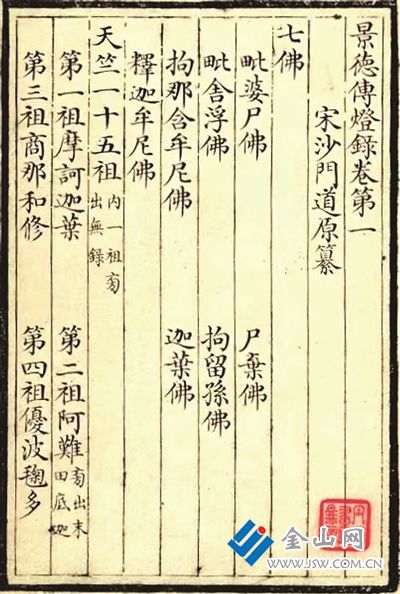 景德傳燈錄卷第一
宋沙門道原纂
七佛
毗婆尸佛 尸棄佛
毗舍浮佛 拘留孫佛
拘那含牟尼佛 迦葉佛
釋迦牟尼佛
天竺一十五祖 內一祖旁出無錄
第一祖摩訶迦葉 第二祖阿難 旁出末田底迦
第三祖商那和修 第四祖優波毱多
金山网
www.JSW.com.cn